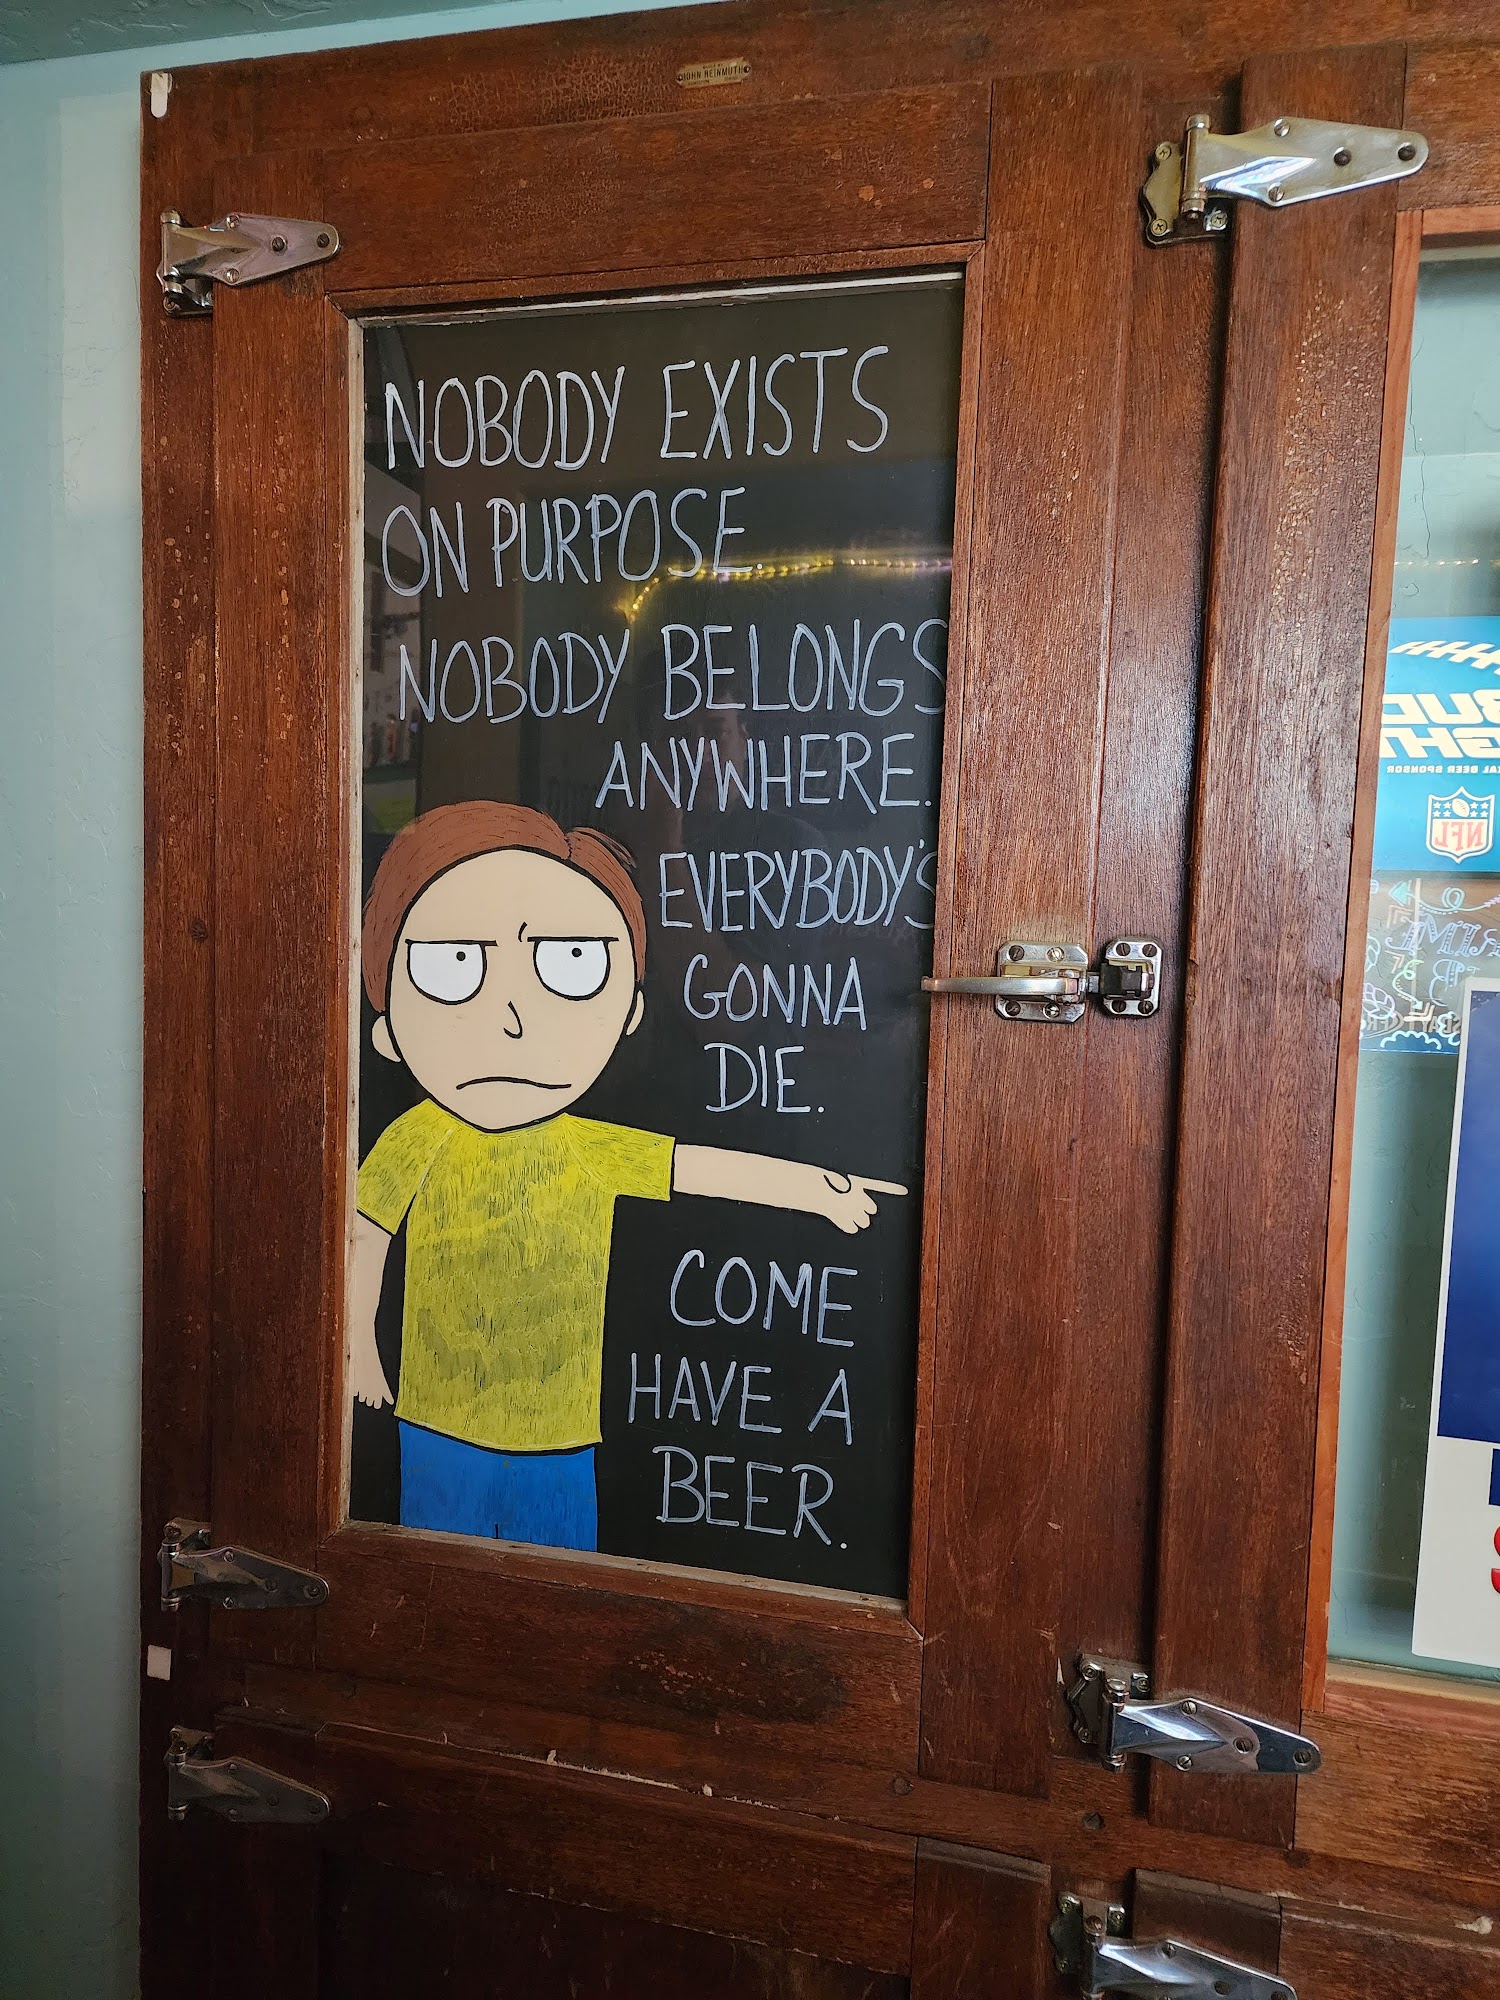 JOHN REINMUTH
NOBODY EXISTS
ON PURPOSE.
NOBODY BELONGS
ANYWHERE.
EVERYBODY'S
GONNA
DIE.
COME
HAVE A
BEER.
BUD
NFL